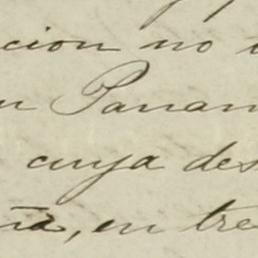 cion no
Panam
cuya des
ña, en tre